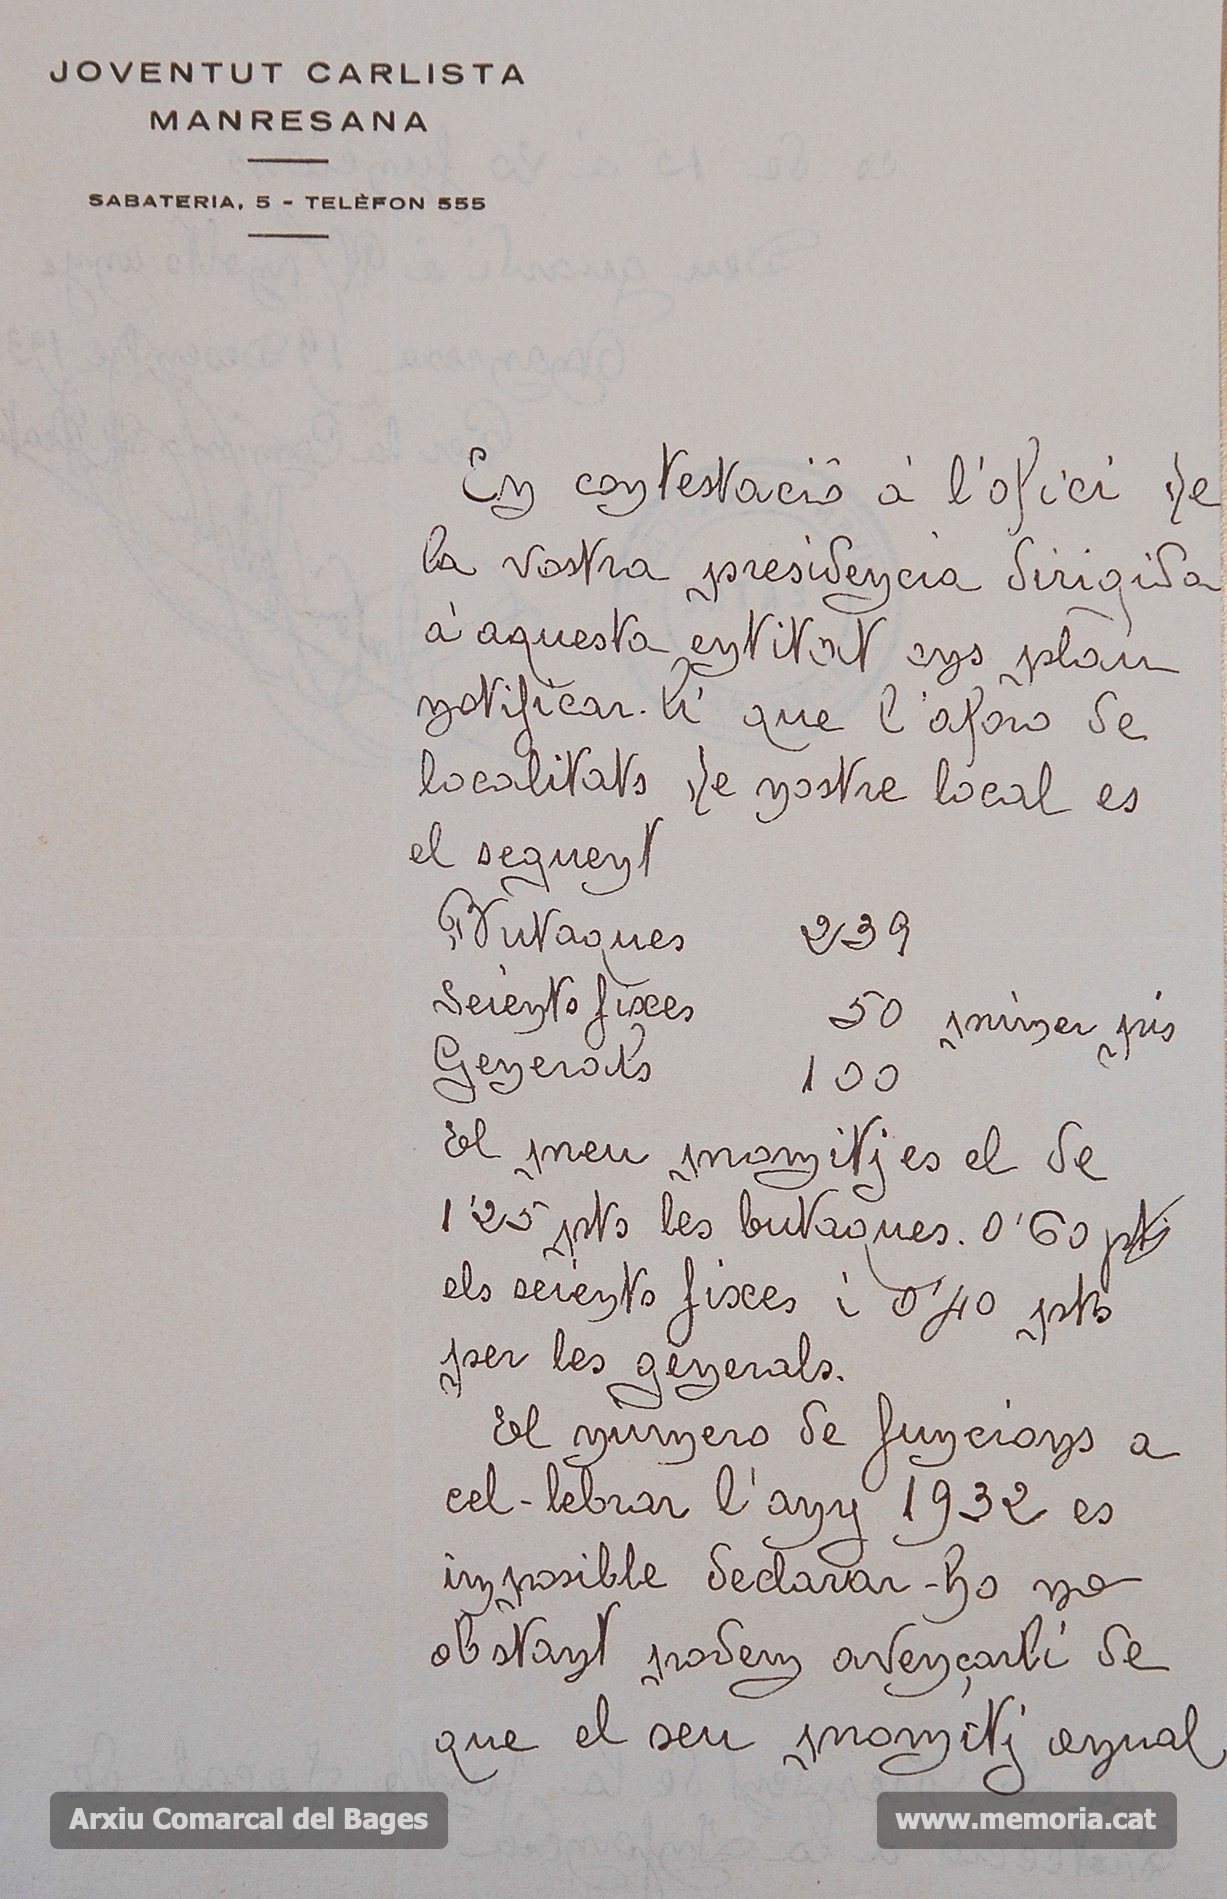 JOVENTUT CARLISTA
MANRESANA
SABATERIA, 5 - TELÈFON 555
En contestació á l'ofici de
la vostra presidencia dirigida
á aquesta entitat ens plau
notificar-li que l'aforo de
localitats de nostre local es
el seguent
Butaques 239
Seients fixes 50 primer pis
Generals 100
El preu promitj es el de
1'25 pts les butaques. 0'60 pts
els seients fixes i 0'40 pts
per les generals.
El número de funcions a
cel-lebrar l'any 1932 es
imposible declarar-ho no
obstant podem avençarli de
que el seu promitj anual
Arxiu Comarcal del Bages
www.memoria.cat